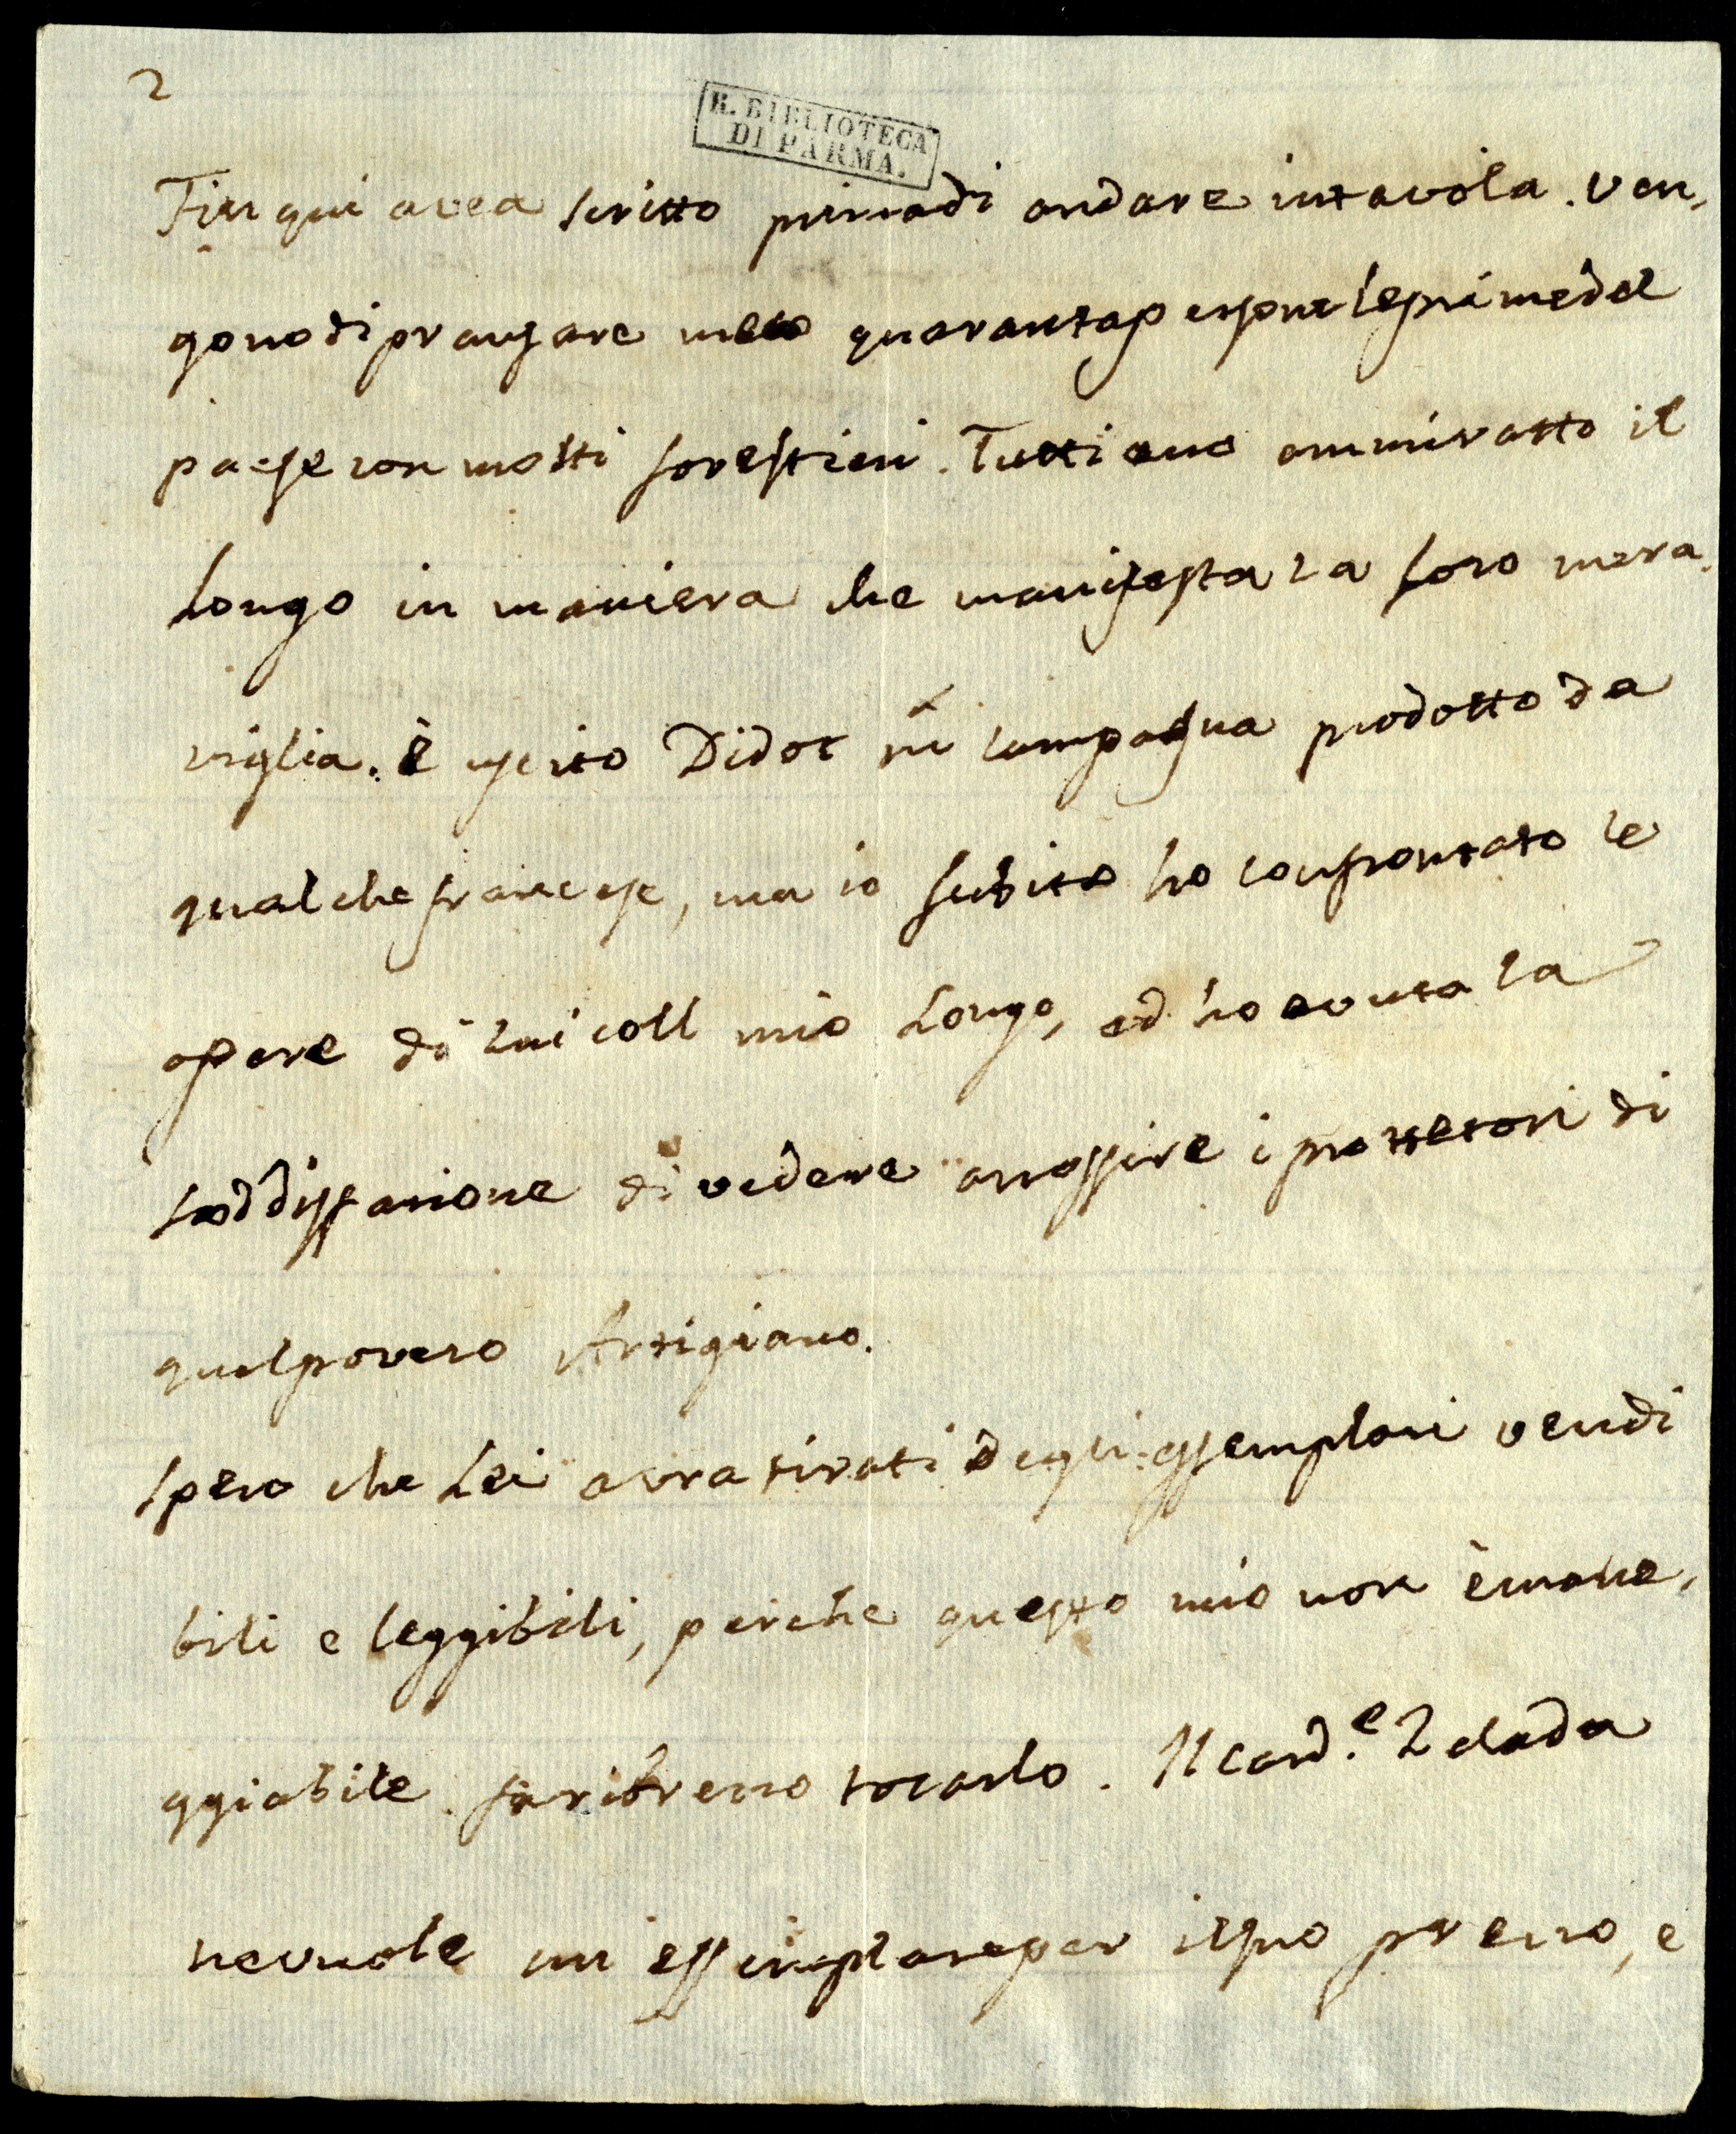 2
R. BIBLIOTECA
DI PARMA.
Fin qui avea scritto prima di andare in tavola. Ven,
gono di pransare meco quaranta persone le prime del
paese con molti forestieri. Tutti ano ammiratto il
Longo in maniera che manifesta la loro mera,
viglia. è uscito Didot in campagna prodotto da
qualche francese, ma io subito ho confrontato le
opere di lui coll mio Longo, ed ho avuta la
soddisfazione di vedere arrossire i prottetori di
quel povero Artigiano.
Spero che Lei avra tirati degli essemplari vendi
bili e leggibili, perche questo mio non è mane,
ggiabile. fa ribrezzo tocarlo. Il Card.e Zelada
ne vuole un essemplare per il suo prezzo, e